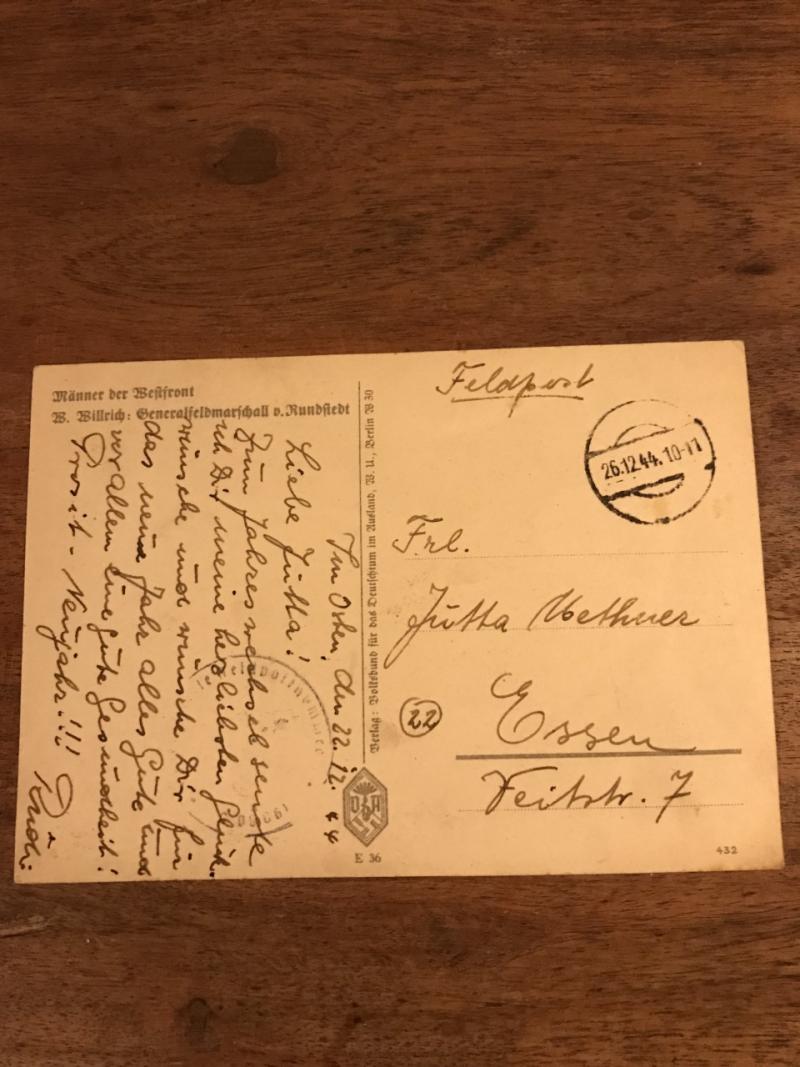 Männer der Westfront
W. Willrich: Generalfeldmarschall v. Rundstedt
Im Osten, den 22.12.44
Liebe Jutta!
Zum Jahreswechsel sende
ich Dir meine herzlichsten Glück-
wünsche und wünsche Dir für
das neue Jahr alles Gute und
vor allem eine gute Gesundheit!
Prosit-Neujahr!!!
Rudi
Verlag: Volksbund für das Deutschtum im Ausland, W. U., Berlin W 30
E 36
Feldpost
26.12.44.10-11
Frl.
Jutta
22
Essen
Veitstr. 7
432